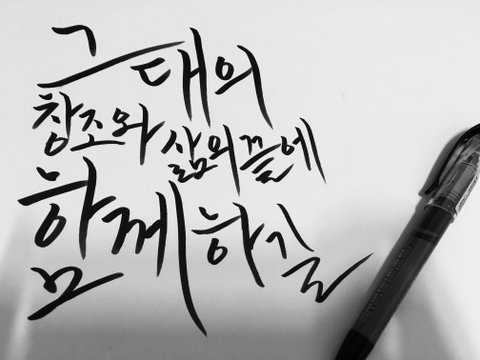 그대의
창조와 삶의 끝에
함께하길